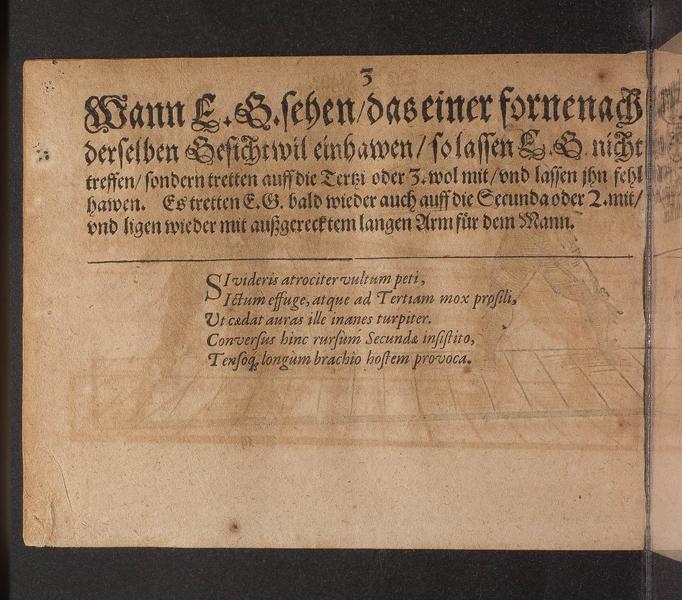 3
Wann E. G. sehen / das einer fornenach
derselben Gesicht wil einhawen / so lassen E. G. nicht
treffen / sondern tretten auff die Tertzi oder 3. wol mit / vnd lassen jhn fehl
hawen. Es tretten E. G. bald wieder auch auff die Secunda oder 2. mit /
vnd ligen wieder mit außgerecktem langen Arm für dem Mann.
SI videris atrociter vultum peti,
Ictum effuge, atque ad Tertiam mox prosili,
Ut cædat auras ille inanes turpiter.
Conversus hinc rursum Secundæ insistito,
Tensoq́; longùm brachio hostem provoca.